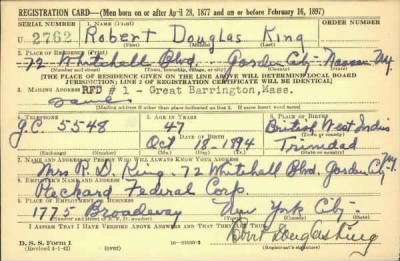 REGISTRATION CARD—(Men born on or after April 28, 1877 and on or before February 16, 1897)
SERIAL NUMBER 1. NAME (Print) ORDER NUMBER
U 2762 Robert Douglas King
(First) (Middle) (Last)
2. PLACE OF RESIDENCE (Print)
72 Whitehall Blvd. Garden City Nassau N.Y.
(Number and street) (Town, township, village, or city) (County) (State)
[THE PLACE OF RESIDENCE GIVEN ON THE LINE ABOVE WILL DETERMINE LOCAL BOARD
JURISDICTION; LINE 2 OF REGISTRATION CERTIFICATE WILL BE IDENTICAL]
3. MAILING ADDRESS RFD # 1 - Great Barrington, Mass.
Same
[Mailing address if other than place indicated on line 2. If same insert word same]
4. TELEPHONE 5. AGE IN YEARS 6. PLACE OF BIRTH
G.C. 5548 47 British West Indies
DATE OF BIRTH
Oct 18-1894 Trinidad
7. NAME AND ADDRESS OF PERSON WHO WILL ALWAYS KNOW YOUR ADDRESS
Mrs R. D. King - 72 Whitehall Blvd. Garden City N.Y.
8. EMPLOYER'S NAME AND ADDRESS
Federal Corp.
9. PLACE OF EMPLOYMENT OR BUSINESS
1775 Broadway New York City
(Number and street or R. F. D. number) (Town) (County) (State)
I AFFIRM THAT I HAVE VERIFIED ABOVE ANSWERS AND THAT THEY ARE TRUE.
D. S. S. Form 1
(Revised 4-1-42) Robert Douglas King
(Registrant's signature)